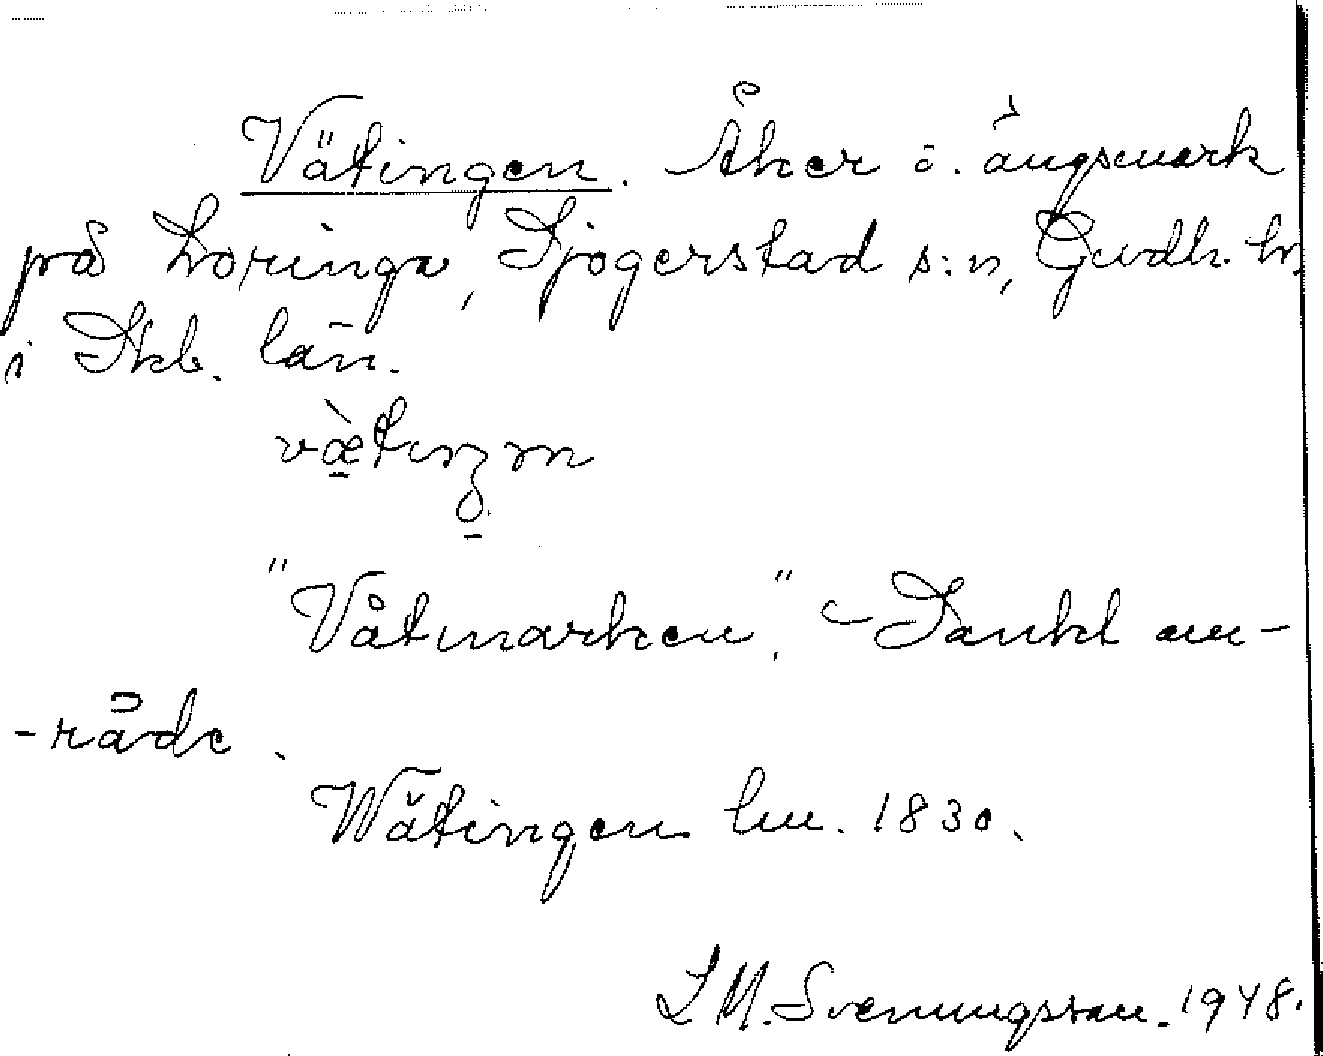 Vätingen. Åker o. ängsmark
på Loringa, Sjogerstad s:n, Gudh. hr.
i Skb. län.
"Våtmarken". - Sankt om-
-råde.
Wätingen lm. 1830.
L M. Svenungsson. 1948.